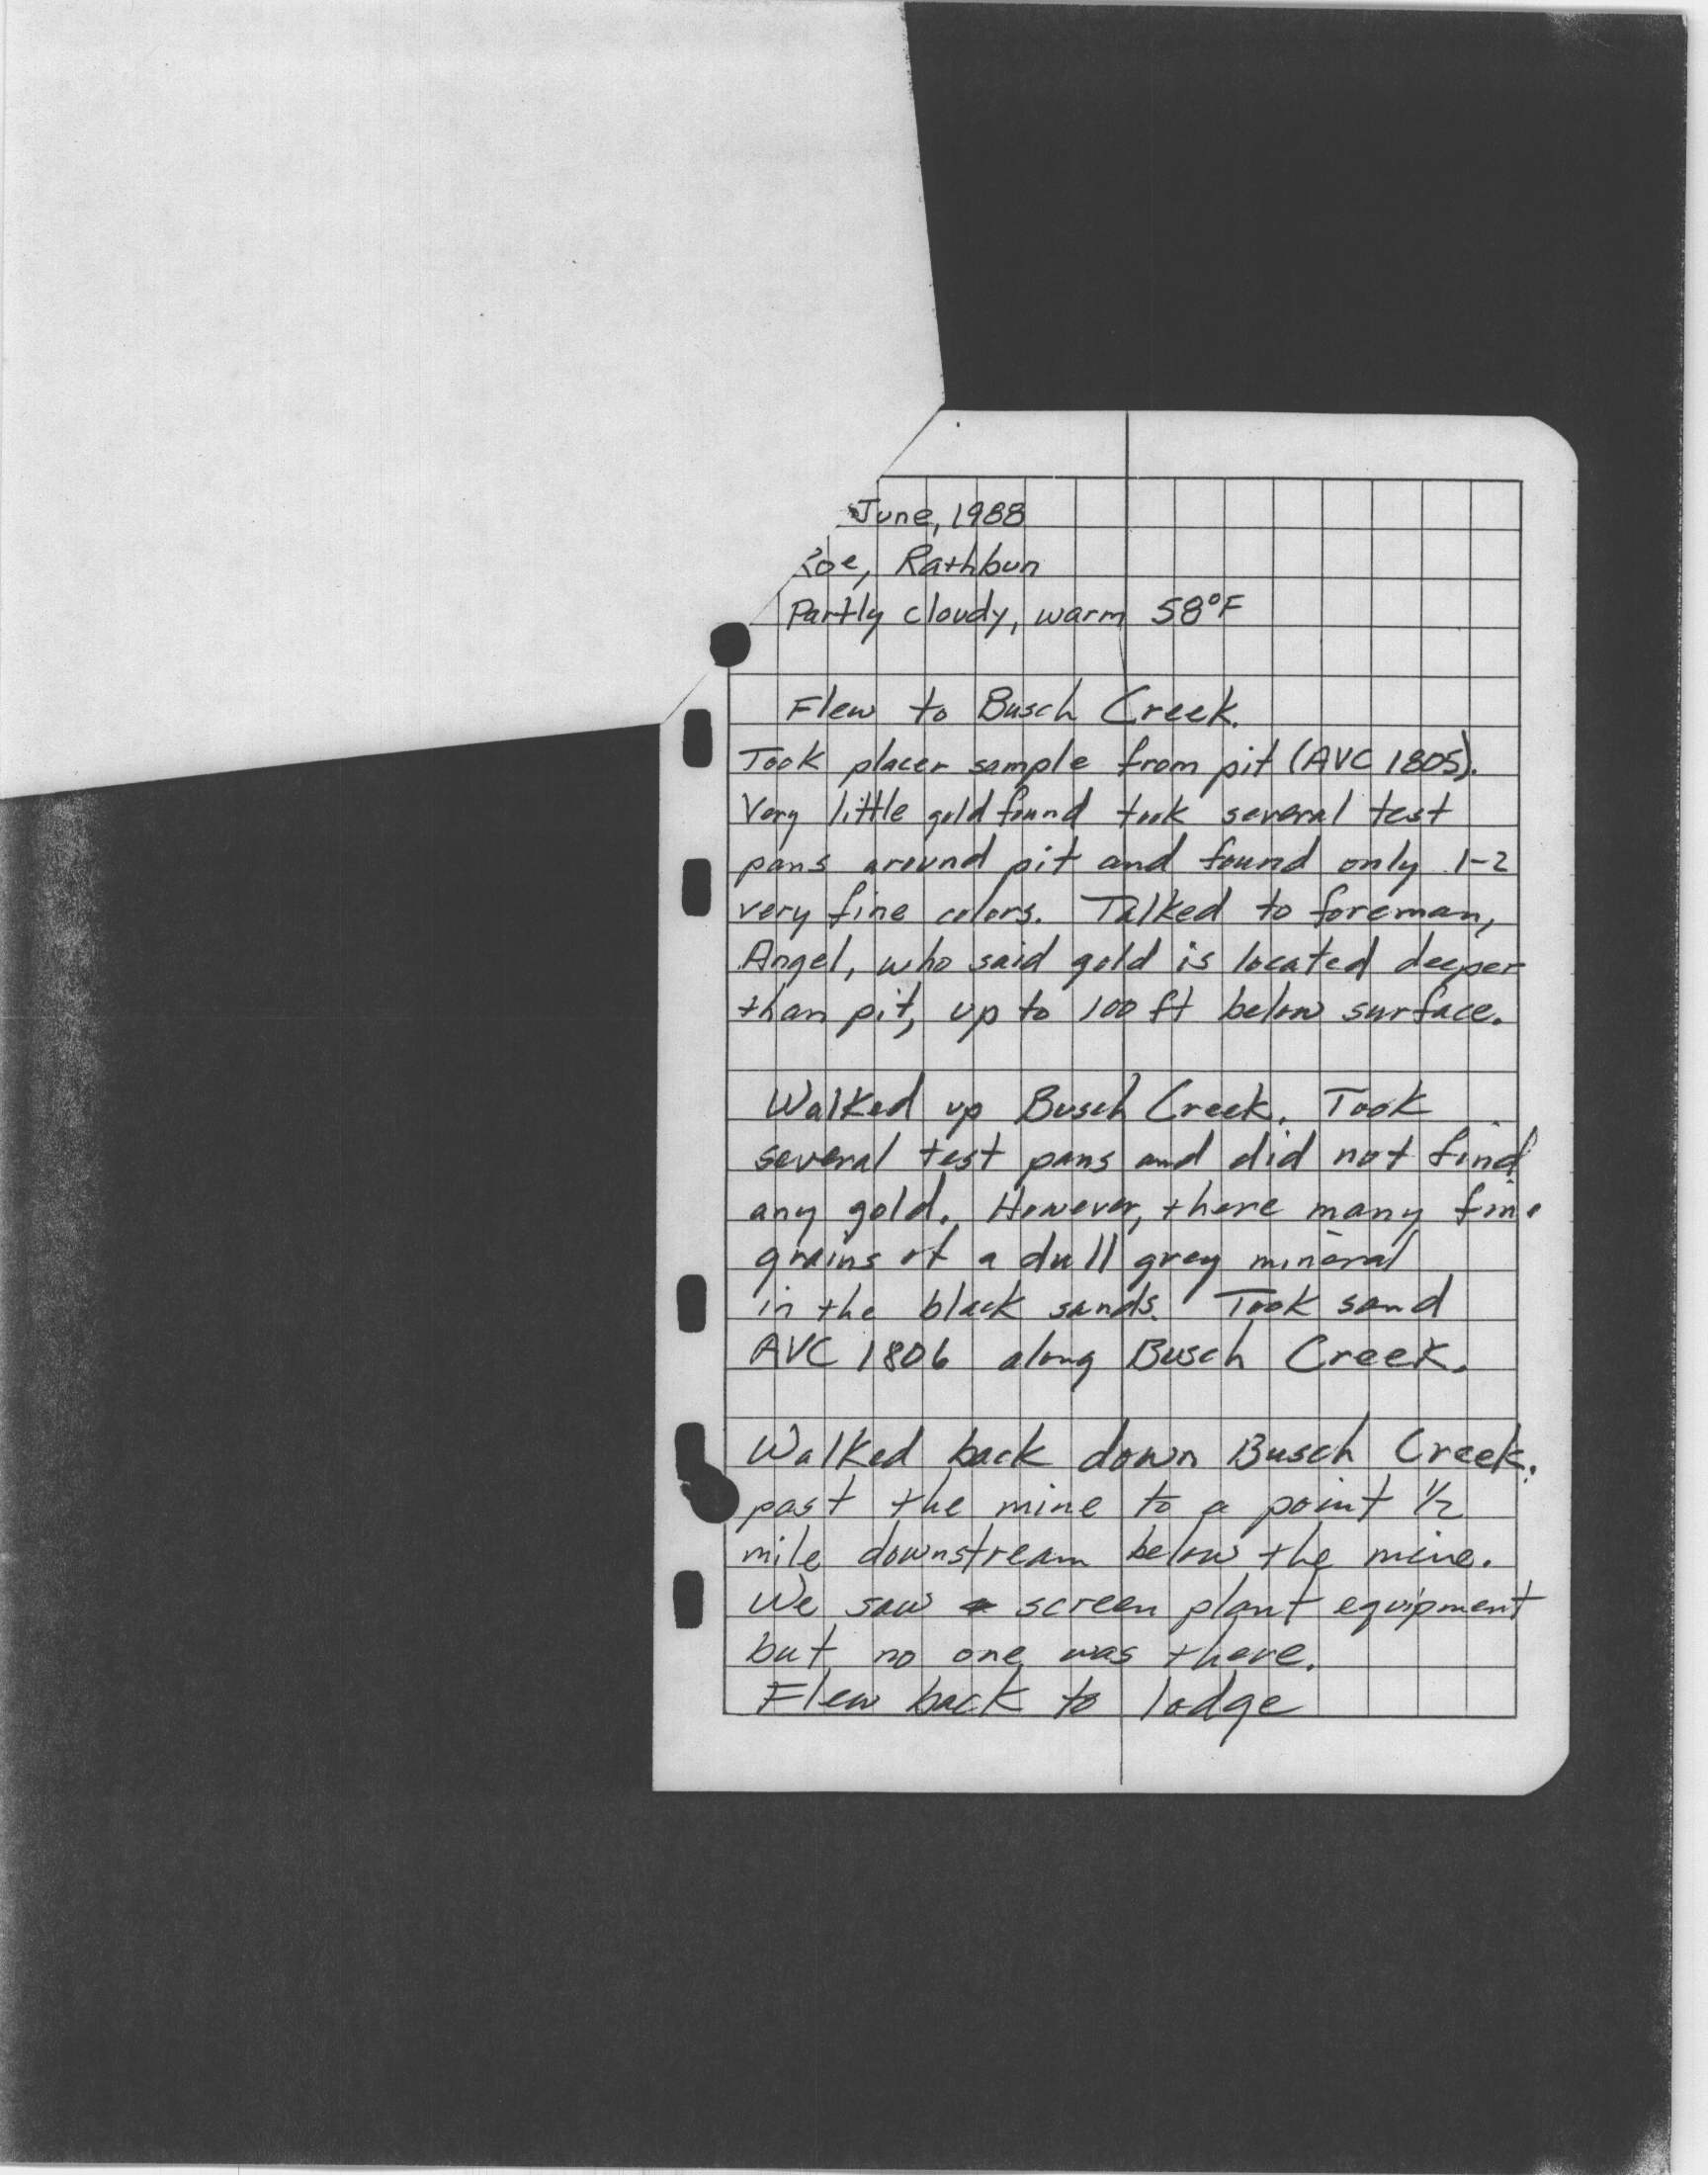 June, 1988
Roe, Rathbun
Partly cloudy, warm 58°F
Flew to Busch Creek.
Took placer sample from pit (AVC 1805).
Very little gold found took several test
pans around pit and found only 1-2
very fine colors. Talked to foreman,
Angel, who said gold is located deeper
than pit, up to 100 ft below surface.
Walked up Busch Creek. Took
several test pans and did not find
any gold. However, there many fine
grains of a dull grey mineral
in the black sands. Took sand
AVC 1806 along Busch Creek.
Walked back down Busch Creek.
past the mine to a point 1/2
mile downstream below the mine.
We saw screen plant equipment
but no one was there.
Flew back to lodge